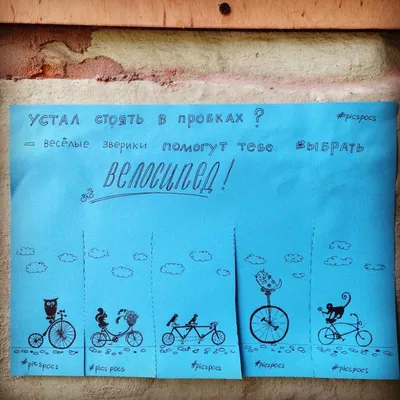 Устал стоять в пробках? #picspocs
– весёлые зверики помогут тебе выбрать
велосипед!
#picspocs #picspocs #picspocs #picspocs #picspocs